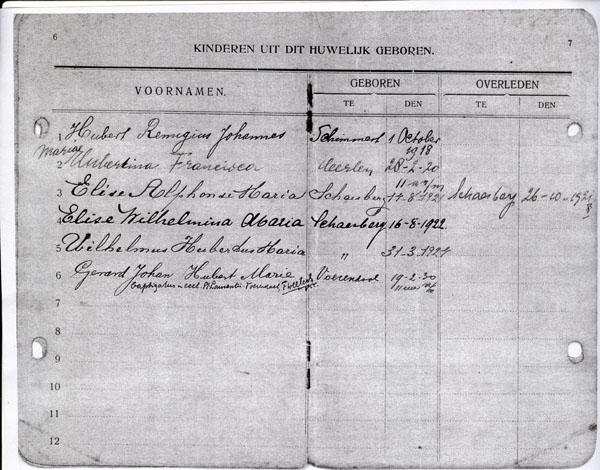 6
7
KINDEREN UIT DIT HUWELIJK GEBOREN.
VOORNAMEN.
GEBOREN
OVERLEDEN
TE
DEN
TE
DEN
1 Hubert Remigius Johannes Schimmert 1 October
1918
Maria
2 Hubertina Francisca 28-2-20
3 Elise Alphonse Maria Schaesberg Schaesberg 26-10-1921
4 Elise Wilhelmina Maria Schaesberg 16-8-1922
5 Wilhelmus Hubertus Maria " 31-3-1927
6 Gerard Johan Hubert Marie Voerendaal 19-2-30
baptizatus in eccl. Laurentii Voerendaal
7
8
9
10
11
12